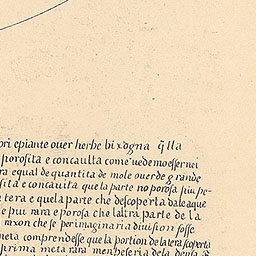 ori e piante over herbe bisogna q̃lla
porosita e concauita come uedemo essernei
ra equal de quantita de mole ouer de grande
sita e concauita que la parte no porosa piu pe-
tera e quela parte che descoperta dale aque
e piu rara e porosa che laltra parte de la
nixon che se per imaginaria diuision fosse
meta comprendesse que la portion de la tera scoperta
prima meta rara men peseria de la